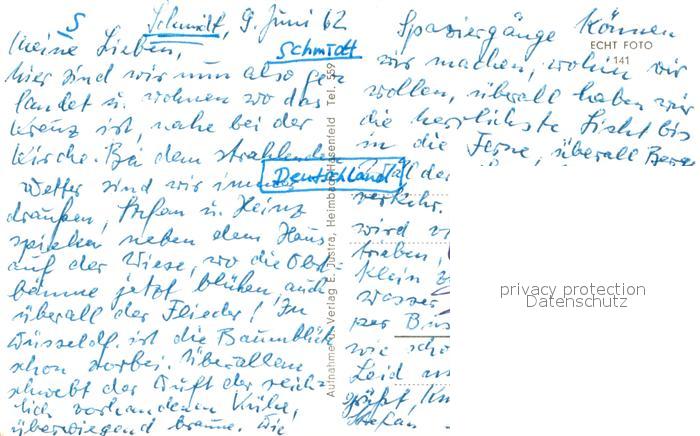 S
Schmidt, 9. Juni 62
Schmidt
Meine Lieben,
hier sind wir nun also ge-
landet u. wohnen wo das
Kreuz ist, nahe bei der
Kirche. Bei dem strahlenden
Wetter sind wir immer
draußen, Stefan u. Heinz
spielen neben dem Haus
auf der Wiese, wo die Obst-
bäume jetzt blühen, auch
überall der Flieder! In
Düsseld. ist die Baumblüte
schon vorbei. Über allem
schwebt der Duft der reich-
lich vorhandenen Kühe,
überwiegend braune. Die
Deutschland
Spaziergänge können
wir machen, wohin wir
wollen, überall haben wir
die herrlichste Sicht bis
in die Ferne, überall Berge
der
verkehr.
wird
trieben,
Klein
wasser
per Bus
wie scho
Leid
grüßt,
Stefan
ECHT FOTO
141
Aufnahme u. Verlag E. Justra, Heimbach-Hasenfeld Tel. 559
privacy protection
Datenschutz